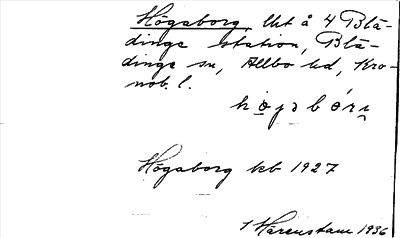 Högaborg. Uet å 4 Blä-
dinge station, Blä-
dinge sn, Allbo hd, Kro-
nob. l.
Högaborg kb 1927
Härenstam 1936